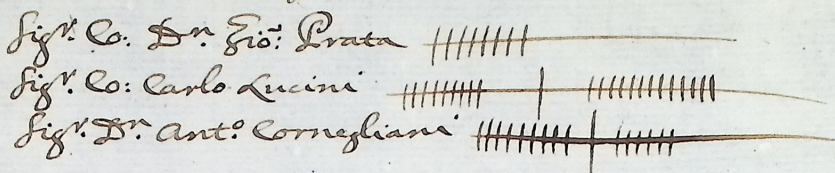 Sigr. Co: Dn. Gio: Prata
Sigr. Co: Carlo Lucini
Sigr. Dn. Anto. Cornegliani